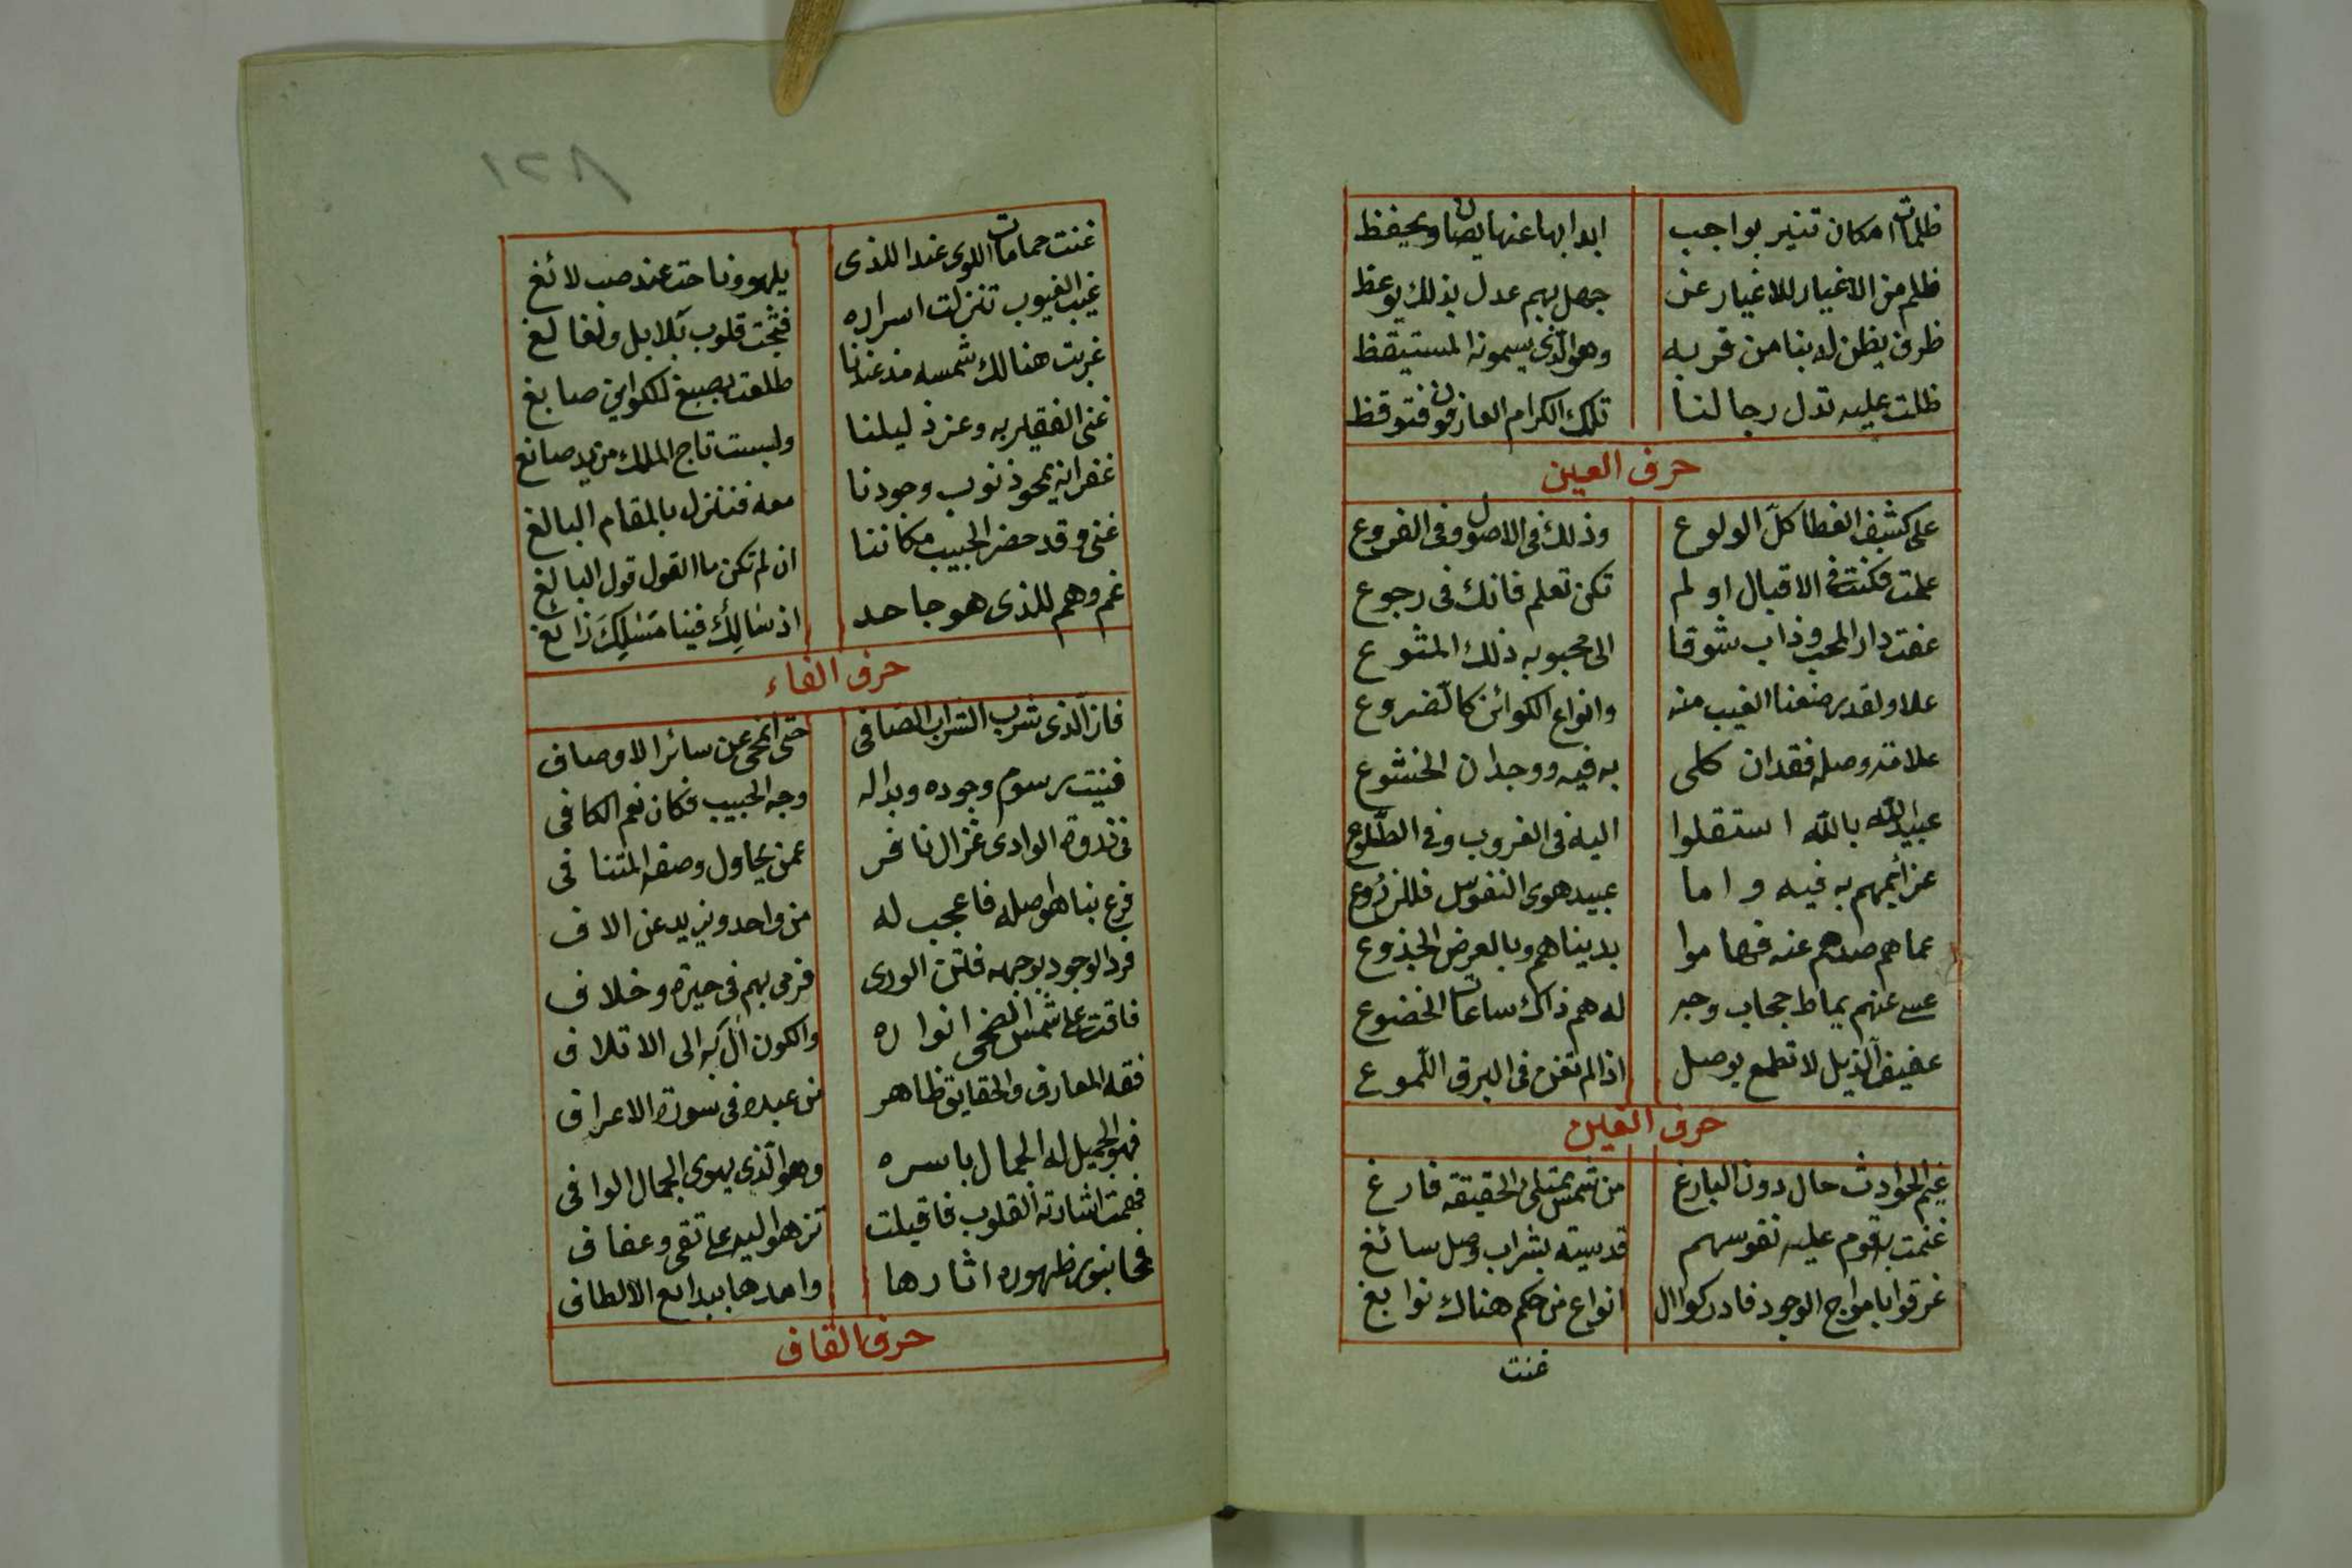 ظلمات امكان تنير بواجب ابدا بها عنها يصان ويحفظ
ظلم من الاغيار للاغيار عن جهل بهم عدل بذلك يوعظ
ظرف يظن له بنا من قربه وهو الذى يسمونه المستيقظ
ظلت عليه تدل رجا لنا تلك الكرام العارفون فتوقظ
حرف العين
على كشف الغطا كلّ الولوع وذلك فى الاصول وفى الفروع
علمت فكنت فى الاقبال او لم تكن تعلم فانك فى رجوع
عفت دار المحب وذاب شوقا الى محبوبه ذلك
علا ولقد رضعنا الغيب منه وانواع الكوائن كالضروع
علامة وصله فقدان كلى به فيه ووجدان الخشوع
عبيد الله بالله استقلوا اليه فى الغروب وفى الطلوع
عزائمهم به فيه واما عبيد هوى النفوس فللنزوع
عماهم صدهم عنه فهاموا بدنياهم وبالعرض الجذوع
عسى عنهم يماط حجاب وجه له هم ذاك ساعات الخضوع
عفيف الذيل لا تطمع بوصل اذا لم تفن فى البرق اللموع
حرف الغين
غيم الحوادث حال دون البازغ من شمس ممتلى الحقيقة فارغ
غنمت به قوم عليه نفوسهم قدسية بشراب وصل سائغ
غرقوا بامواج الوجود فادركوا ال انواع من حكم هناك نوابغ
غنت
٨٢١
غنت حمامات اللوى عند اللذى يلهو وناحت عند صب لائغ
غيب الغيوب تنزلت اسراره قلوب بلابل
غربت هنالك شمسه مذ عندنا طلعت بصبغ للكواين صابغ
غنى الفقير به وعز ذليلنا ولبست تاج الملك من يد صانغ
غفرانه يمحو ذنوب وجودنا معه فننزل بالمقام البالغ
غنى وقد حضر الحبيب مكاننا ان لم تكن ما القول قول البالغ
غم وهم للذى هو جاحد اذ سالك فينا مسلك زائغ
حرف الفاء
فاز الذى شرب الشراب الصافى حتى انمحى عن سائر الاوصاف
فنيت رسوم وجوده وبدا له وجه الحبيب فكان نعم الكافى
فى ذروة الوادى غزال نافر عمن يحاول وصفه المتنافى
فرع بنا هو اصله فاعجب له من واحد ويزيد عن الاف
فرد الوجود بوجهه فتن الورى فرمى بهم فى حيرة وخلاف
فاقت على شمس الضحى انواره والكون آل به الى الاتلاف
فقه المعارف والحقايق ظاهر من عبده فى سورة الاعراف
فهو الجميل له الجمال باسره وهو الذى يهوى الجمال الوافى
فهمت اشارته القلوب فاقبلت تزهو اليه على تقى وعفاف
فمحا بنور ظهوره اثارها وامدها ببدائع الالطاف
حرف القاف